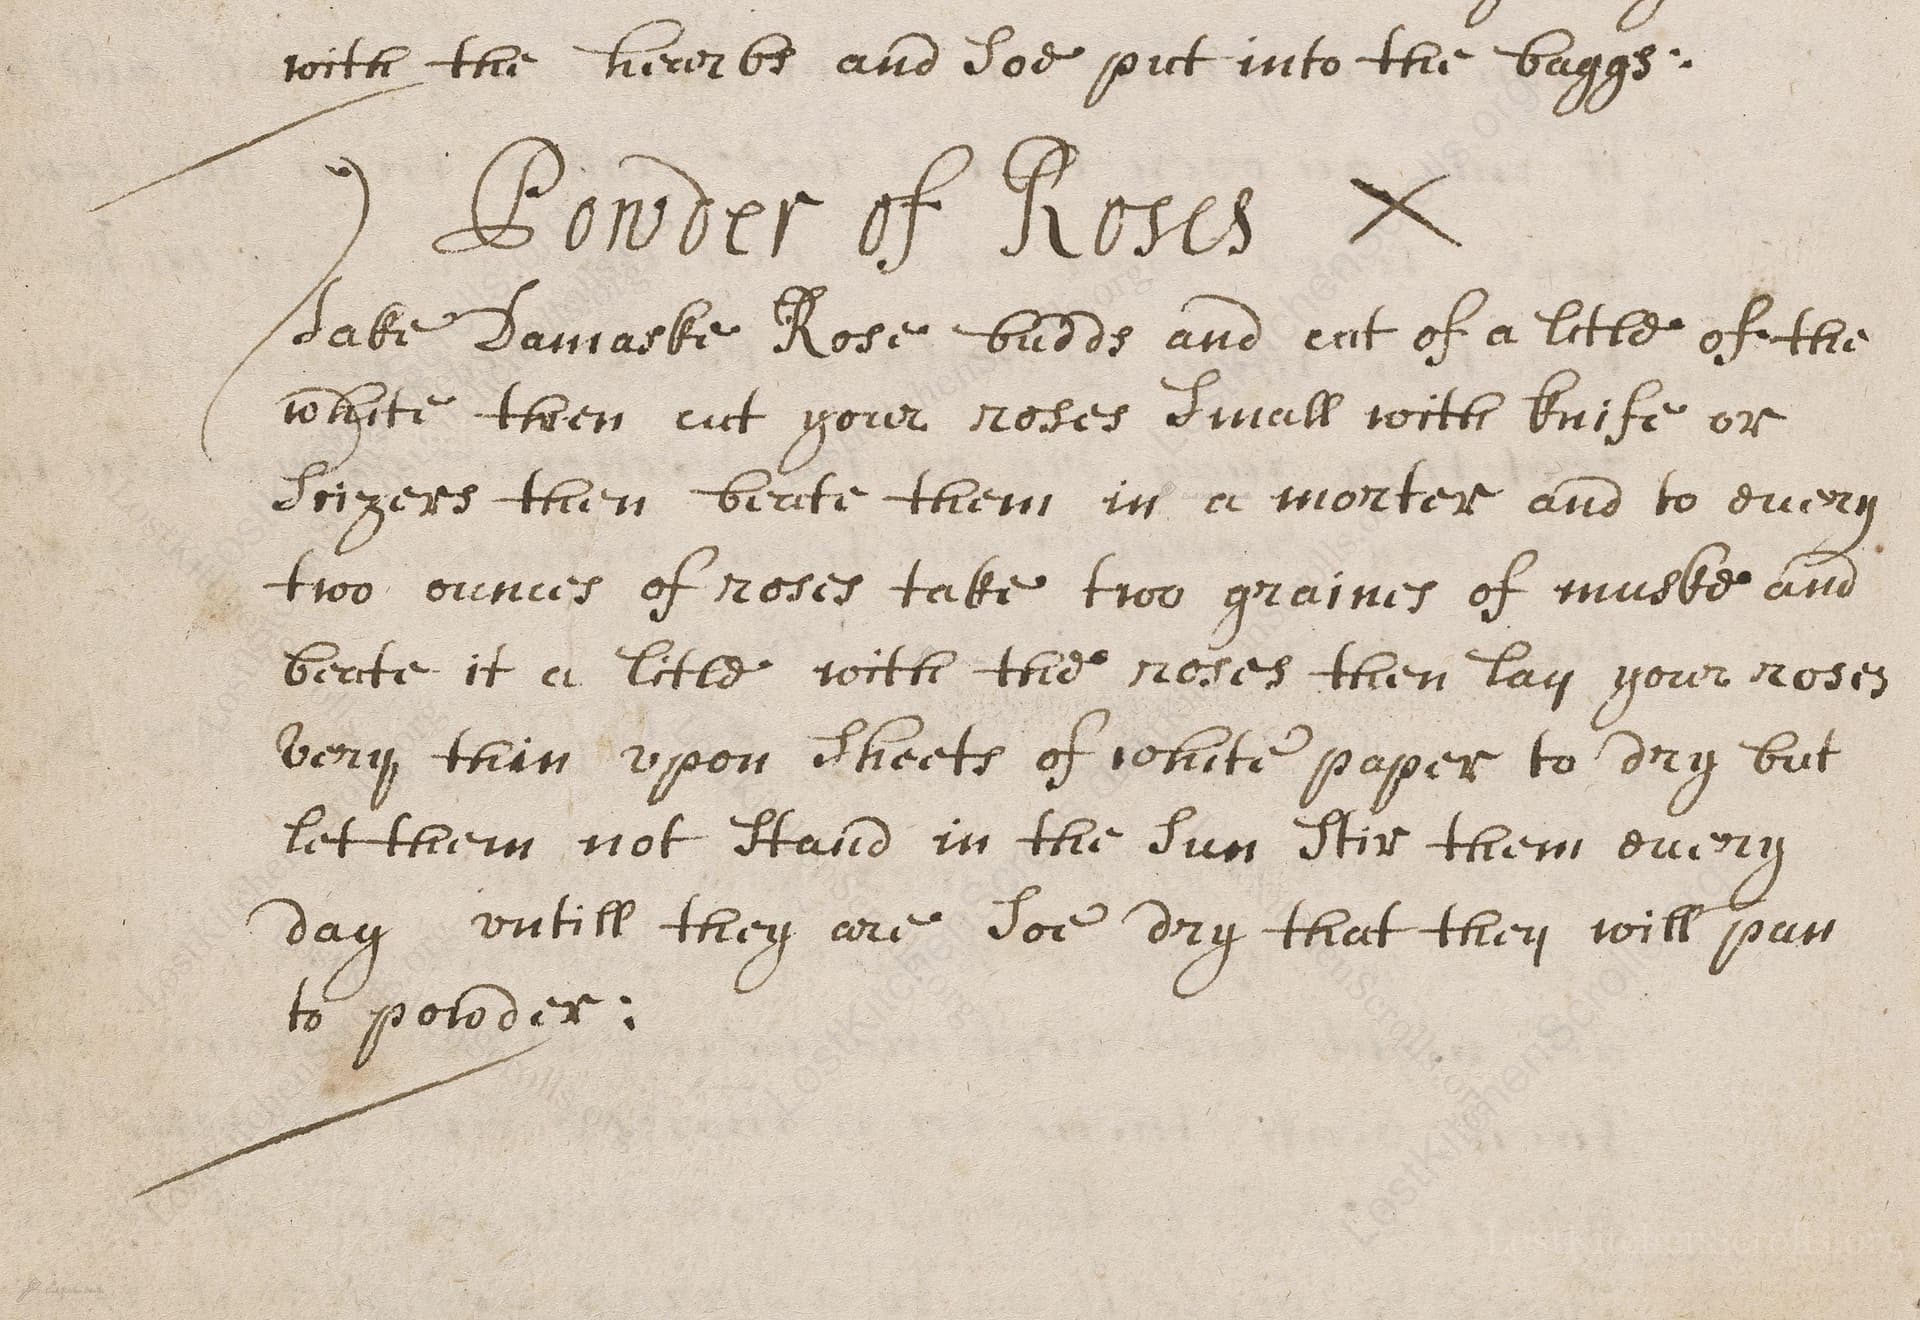 with the hearbs and soe put into the baggs:
Powder of Roses X
Take Damaske Rose budds and cut of a litle of the
white then cut your roses small with knife or
scizers then beate them in a morter and to euery
two ounces of roses take two graines of muske and
beate it a litle with the roses then lay your roses
very thin vpon sheets of white paper to dry but
let them not stand in the sun stir them euery
day vntill they are soe dry that they will pun
to powder:
LostKitchenScrolls.org